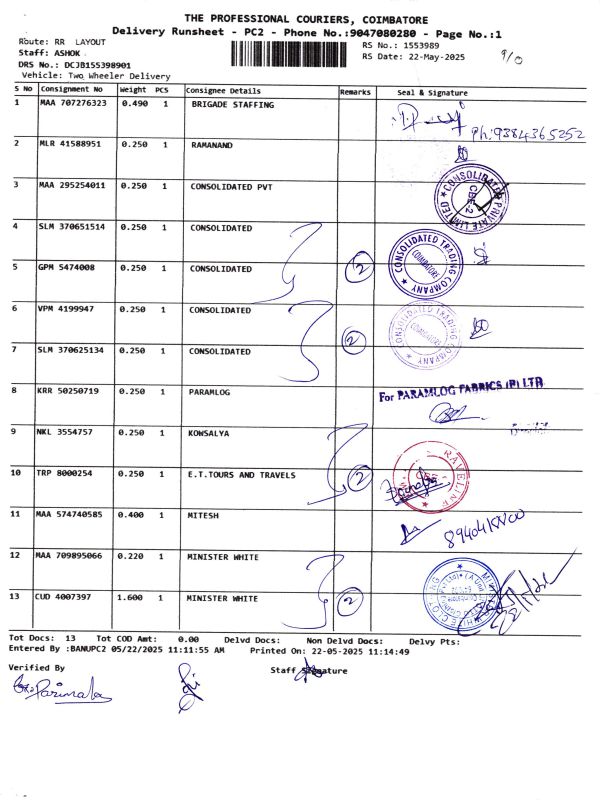 THE PROFESSIONAL COURIERS, COIMBATORE
Delivery Runsheet - PC2 - Phone No.:9047080280 - Page No.:1
Route: RR LAYOUT
Staff: ASHOK
DRS No.: DCJB155398901
Vehicle: Two Wheeler Delivery
RS No.: 1553989
RS Date: 22-May-2025
9/0
S No Consignment No Weight PCS Consignee Details Remarks Seal & Signature
1 MAA 707276323 0.490 1 BRIGADE STAFFING
Ph:9384365252
2 MLR 41588951 0.250 1 RAMANAND
3 MAA 295254011 0.250 1 CONSOLIDATED PVT
CONSOLIDATED PRIVATE LIMITED
CBE-2
4 SLM 370651514 0.250 1 CONSOLIDATED
CONSOLIDATED TRADING COMPANY
COIMBATORE
5 GPM 5474008 0.250 1 CONSOLIDATED
2
6 VPM 4199947 0.250 1 CONSOLIDATED
CONSOLIDATED TRADING COMPANY
COIMBATORE
2
7 SLM 370625134 0.250 1 CONSOLIDATED
8 KRR 50250719 0.250 1 PARAMLOG
For PARAMLOG FABRICS (P) LTD
9 NKL 3554757 0.250 1 KOWSALYA
10 TRP 8000254 0.250 1 E.T.TOURS AND TRAVELS
2
11 MAA 574740585 0.400 1 MITESH
12 MAA 709895066 0.220 1 MINISTER WHITE
13 CUD 4007397 1.600 1 MINISTER WHITE
2
Tot Docs: 13 Tot COD Amt: 0.00 Delvd Docs: Non Delvd Docs: Delvy Pts:
Entered By :BANUPC2 05/22/2025 11:11:55 AM Printed On: 22-05-2025 11:14:49
Verified By
Staff Signature
Parimala